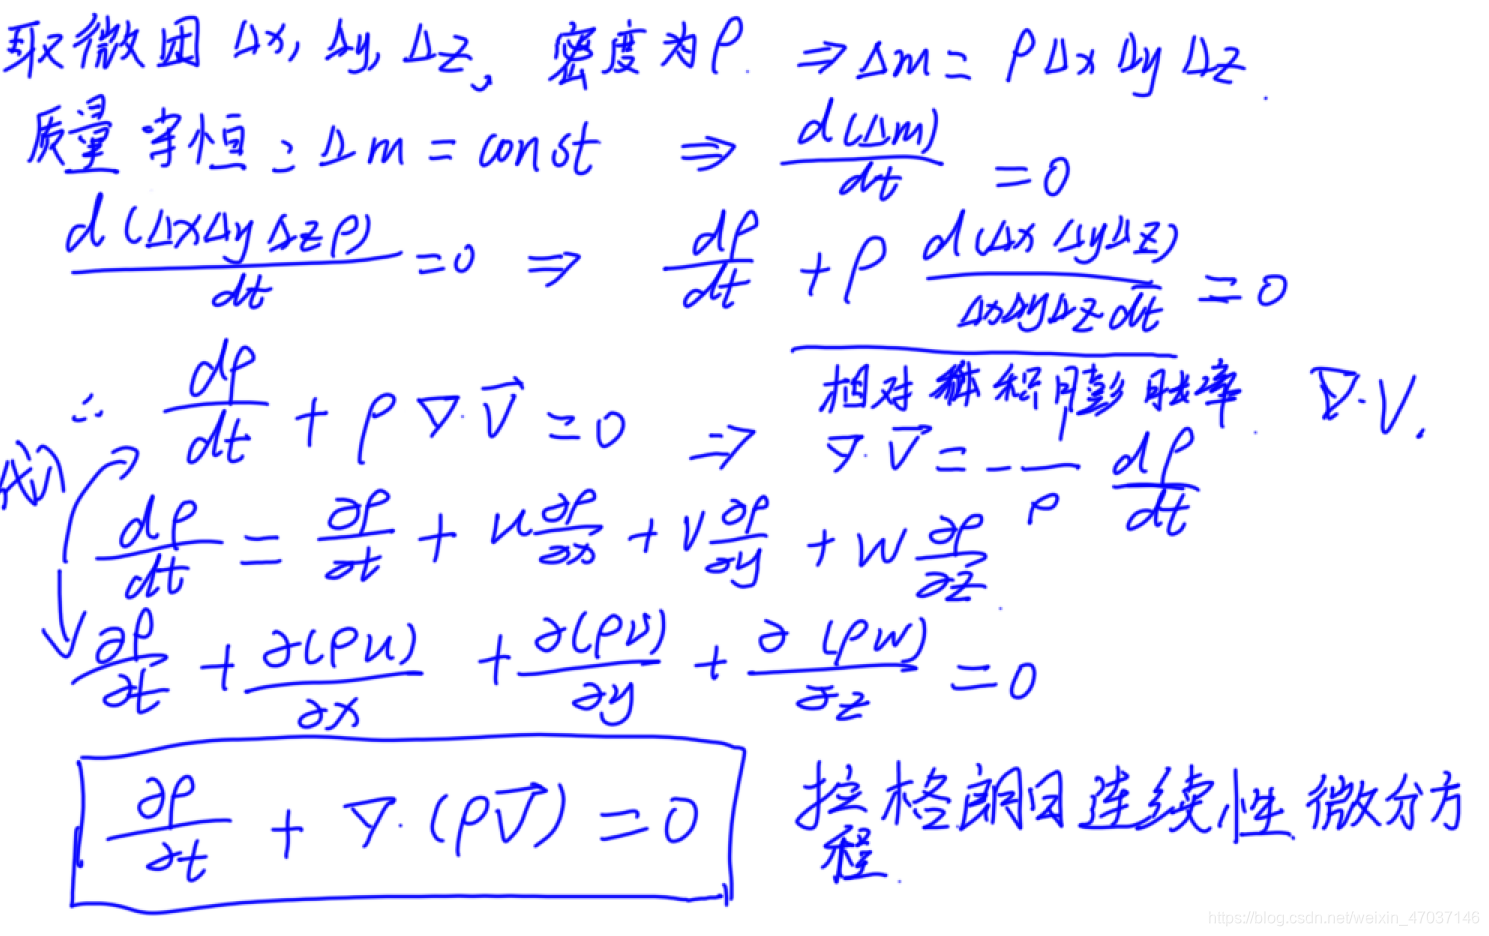 取微团 Δx, Δy, Δz, 密度为ρ. ⇒ Δm = ρΔxΔyΔz.
质量守恒: Δm = const ⇒ d(Δm)/dt = 0
d(ΔxΔyΔzρ)/dt = 0 ⇒ dρ/dt + ρ d(ΔxΔyΔz)/ΔxΔyΔz dt = 0
相对体积膨胀率. ∇·V.
∴ dρ/dt + ρ∇·V⃗ = 0 ⇒ ∇·V⃗ = -1/ρ dρ/dt
代入
dρ/dt = ∂ρ/∂t + u ∂ρ/∂x + v ∂ρ/∂y + w ∂ρ/∂z.
∂ρ/∂t + ∂(ρu)/∂x + ∂(ρv)/∂y + ∂(ρw)/∂z = 0
∂ρ/∂t + ∇·(ρV⃗) = 0 拉格朗日连续性微分方
程.
https://blog.csdn.net/weixin_47037146